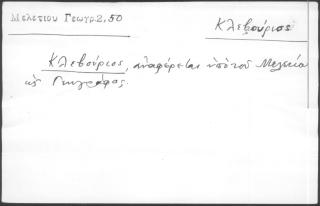 Μελετίου Γεωγρ.2,50
Κλεβούριος
Κλεβούριος, ἀναφέρεται ὑπὸ τοῦ Μελετίου
ὡς Γεωγράφος.